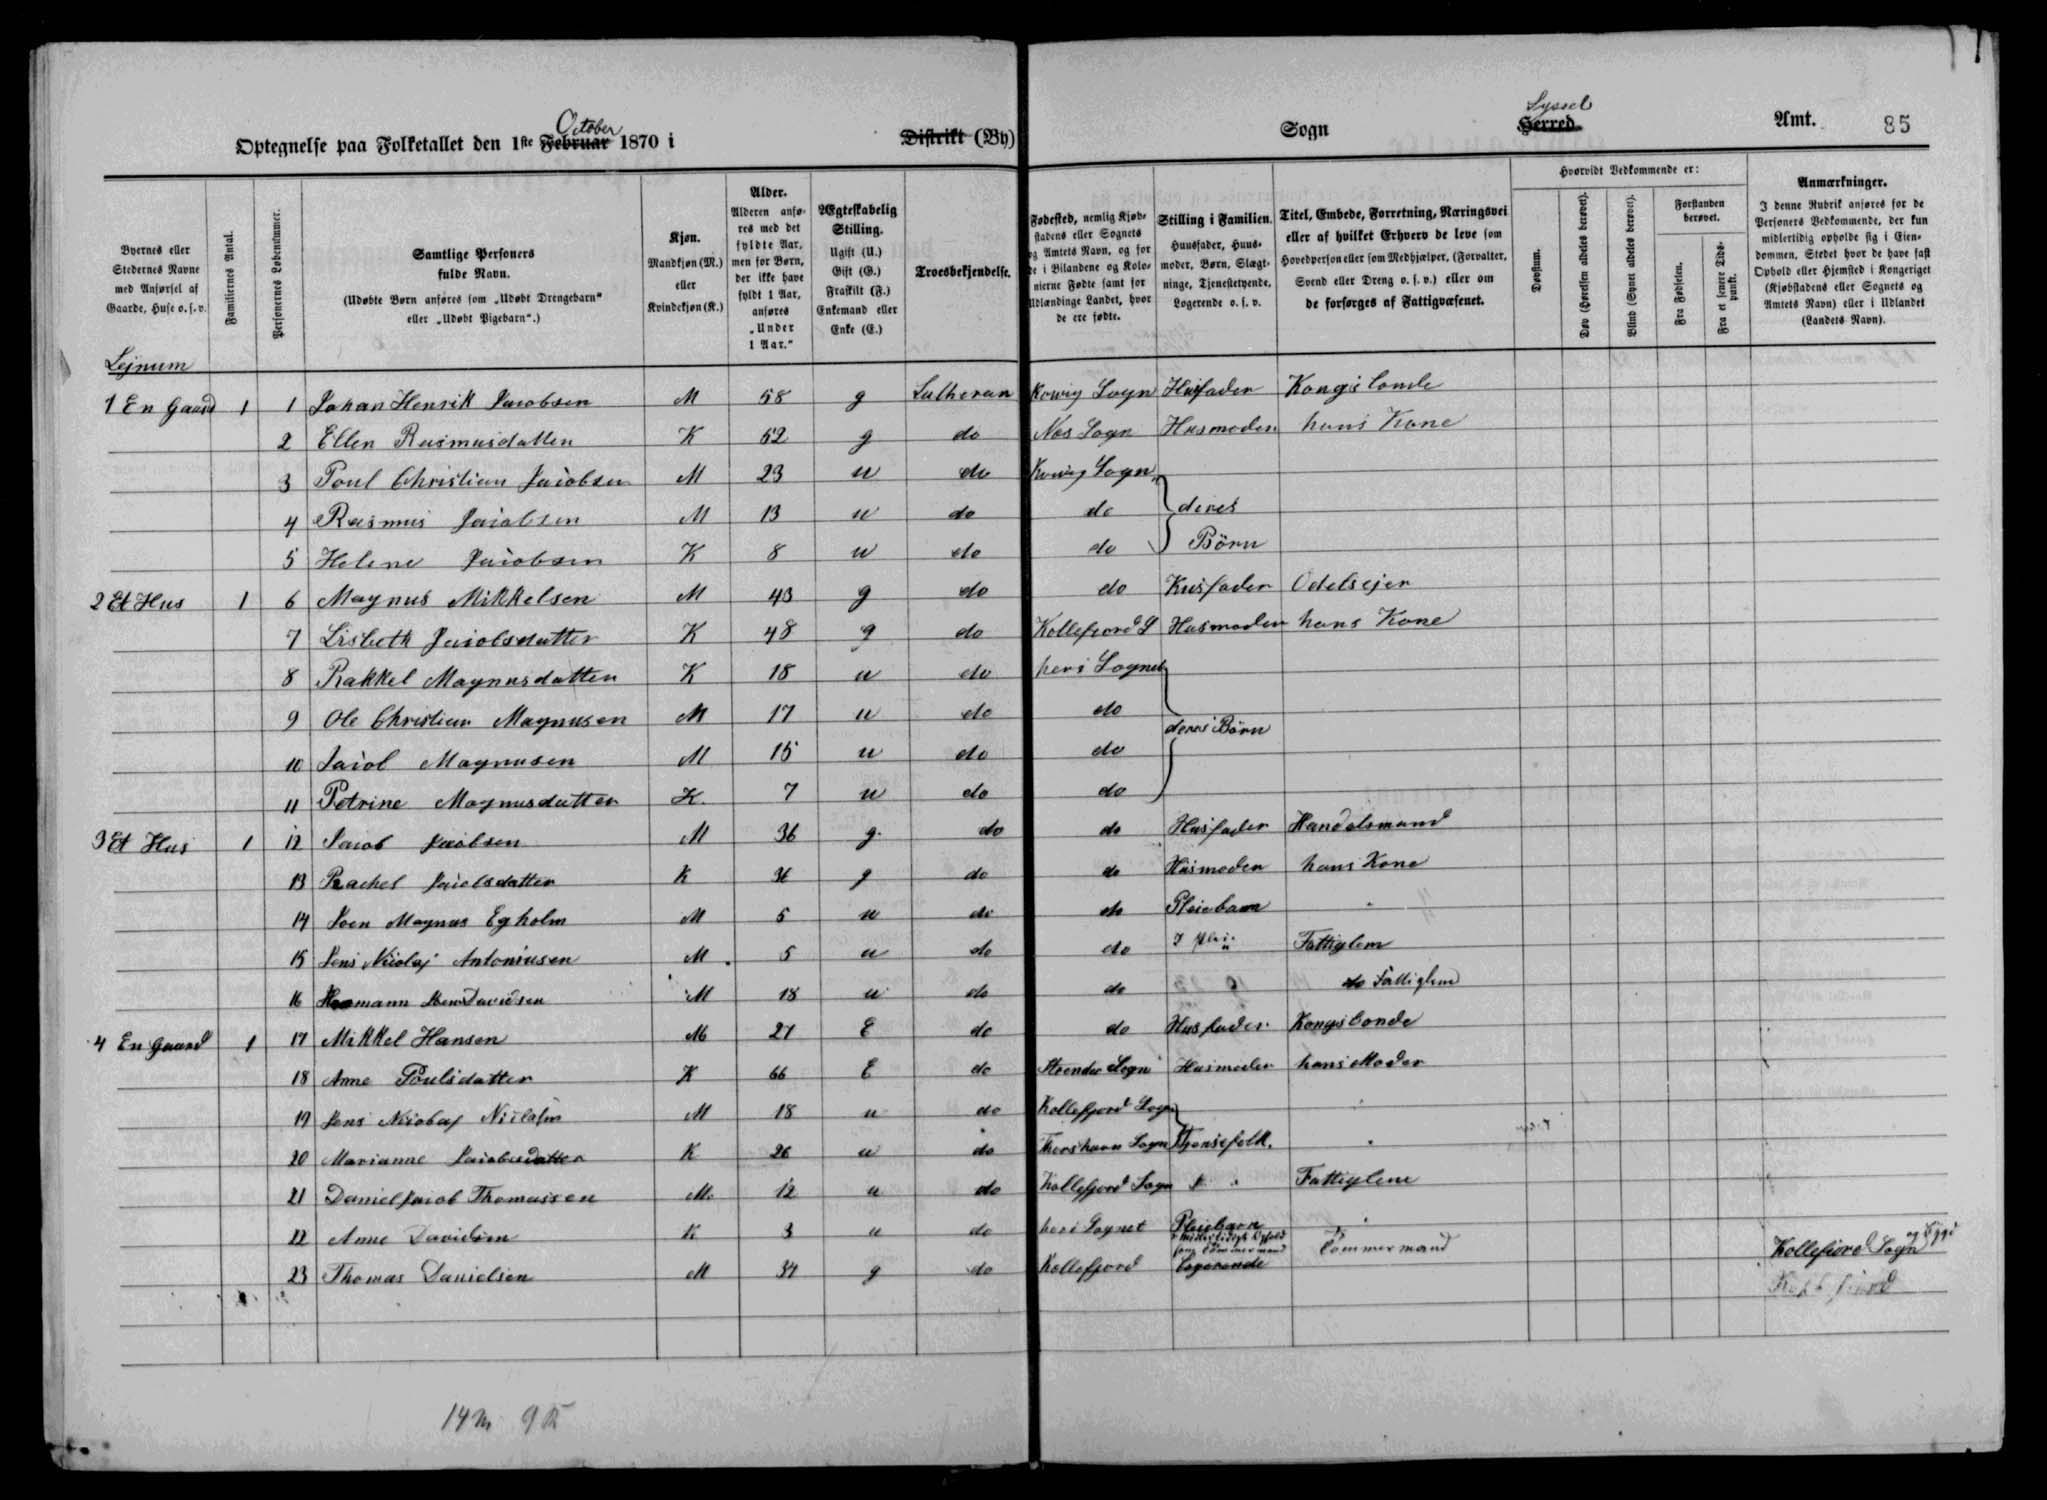 October
Optegnelse paa Folketallet den 1ste Februar 1870 i Distrikt (By)
Sogn
Syssel
Herred
Amt.
85
Byernes eller Stedernes Navne med Anførsel af Gaarde, Huse o. s. v.
Familiernes Antal.
Personernes Løbenummer.
Samtlige Personers fulde Navn.
(Udøbte Børn anføres som „Udøbt Drengebarn" eller „Udøbt Pigebarn".)
Kjøn.
Mandkjøn (M.) eller Kvindekjøn (K.)
Alder.
Alderen anføres med det fyldte Aar, men for Børn, der ikke have fyldt 1 Aar, anføres „Under 1 Aar."
Ægteskabelig Stilling.
Ugift (U.) Gift (G.) Fraskilt (F.) Enkemand eller Enke (E.)
Troesbekjendelse.
Fødested, nemlig Kjøbstadens eller Sognets og Amtets Navn, og for de i Bilandene og Kolonierne Fødte samt for Udlændinge Landet, hvor de ere fødte.
Stilling i Familien.
Huusfader, Huusmoder, Børn, Slægtninge, Tjenestetyende, Logerende o. s. v.
Titel, Embede, Forretning, Næringsvei eller af hvilket Erhverv de leve som Hovedperson eller som Medhjælper, (Forvalter, Svend eller Dreng o. s. v.) eller om de forsørges af Fattigvæsenet.
Hvorvidt Vedkommende er:
Døvstum.
Døv (Hørelsen aldeles berøvet).
Blind (Synet aldeles berøvet).
Forstanden berøvet.
Fra Fødselen.
Fra et senere Tidspunkt.
Anmærkninger.
I denne Rubrik anføres for de Personers Vedkommende, der kun midlertidig opholde sig i Eiendommen, Stedet hvor de have fast Ophold eller Hjemsted i Kongeriget (Kjøbstadens eller Sognets og Amtets Navn) eller i Udlandet (Landets Navn).
Lejnum
1 En Gaard 1 1 Johan Henrik Jacobsen M 58 g Lutheran Kowig Sogn Husfader Kongsbonde
2 Ellen Rasmusdatter K 52 g do Nes Sogn Husmoder hans Kone
3 Poul Christian Jacobsen M 23 u do Kowig Sogn
4 Rasmus Jacobsen M 13 u do do deres
5 Helene Jacobsen K 8 u do do Börn
2 Et Hus 1 6 Magnus Mikkelsen M 43 g do do Husfader Odelsejer
7 Lisbeth Jacobsdatter K 48 g do Kollefiord S Husmoder hans Kone
8 Rakkel Magnusdatter K 18 u do heri Sognet
9 Ole Christian Magnusen M 17 u do do deres Börn
10 Jacob Magnusen M 15 u do do
11 Petrine Magnusdatter K. 7 u do do
3 Et Hus 1 12 Jacob Jacobsen M 36 g. do do Husfader Handelsmand
13 Rachel Jacobsdatter K 36 g do do Husmoder hans Kone
14 Joen Magnus Egholm M 5 u do do Pleiebarn "
15 Jens Nicolaj Antoniusen M. 5 u do do I pleie Fattiglem
16 Hermann Davidsen M 18 u do do do Fattiglem
4 En Gaard 1 17 Mikkel Hansen M 27 E do do Husfader Kongsbonde
18 Anne Poulsdatter K 66 E do Sogn Husmoder hans Moder
19 Jens Nicolaj M 18 u do Kollefjord Sogn "
20 Marianne Jacobsdatter K 26 u do Thorshavn Sogn Tjenesfolk. "
21 Daniel Jacob Thomassen M. 12 u do Kollefjord Sogn " Fattiglem
22 Anne Davidsen K 3 u do heri Sognet Pleiebarn "
midlertidigt Ophold som Tömmermand
23 Thomas Danielsen M 34 g do Kollefjord Logerende Tömmermand Kollefiord Sogn og Bygd
14 M. 9 K